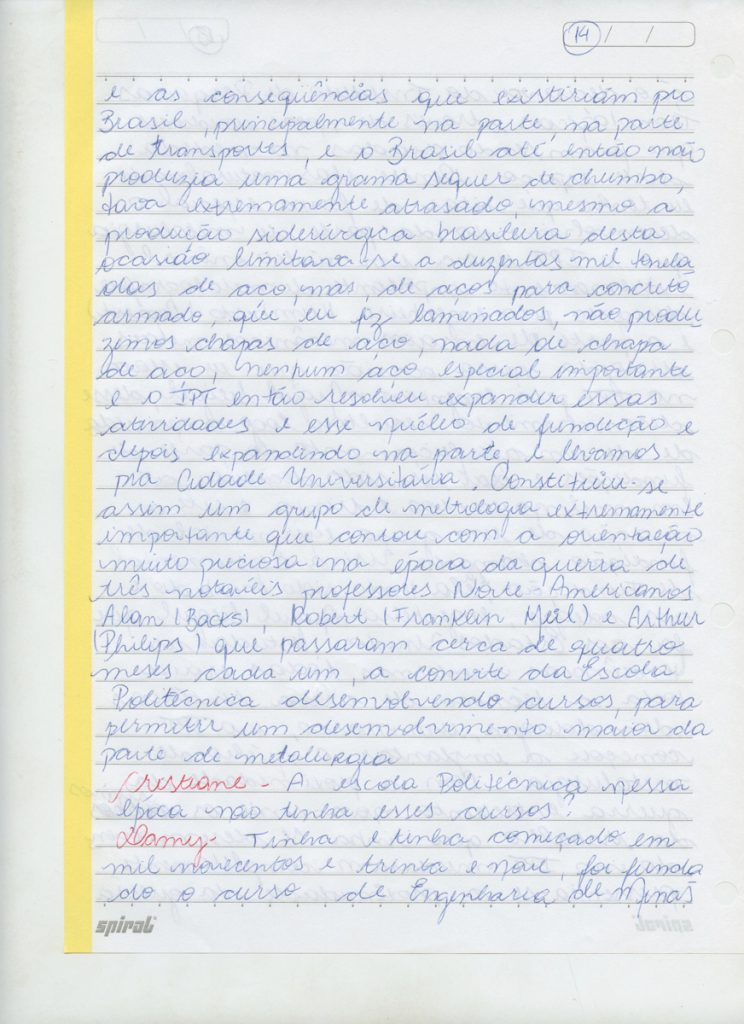 14 / /
e as conseqüências que existiriam pro
Brasil, principalmente na parte, na parte
de transportes, e o Brasil até então não
produzia uma grama sequer de chumbo,
tava extremamente atrasado, mesmo a
produção siderúrgica brasileira desta
ocasião limitava-se a duzentas mil tonela
das de aço, mas, de aços para concreto
armado, que eu fiz laminados, não produ
zimos chapas de aço, nada de chapa
de aço, nenhum aço especial importante
e o IPT então resolveu expandir essas
atividades e esse núcleo de fundição e
depois expandindo na parte e levamos
pra Cidade Universitária. Constituiu-se
assim um grupo de metrologia extremamente
importante que contou com a orientação
muito preciosa na época da guerra de
três notáveis professores Norte-Americanos
Alan (Backs), Robert (Franklin Meil) e Arthur
(Philips) que passaram cerca de quatro
meses cada um, a convite da Escola
Politécnica desenvolvendo cursos, para
permitir um desenvolvimento maior da
parte de metalurgia
Cristiane - A escola Politécnica nessa
época não tinha esses cursos?
Damy - Tinha e tinha começado em
mil novecentos e trinta e nove, foi funda
do o curso de Engenharia de Minas
spiral